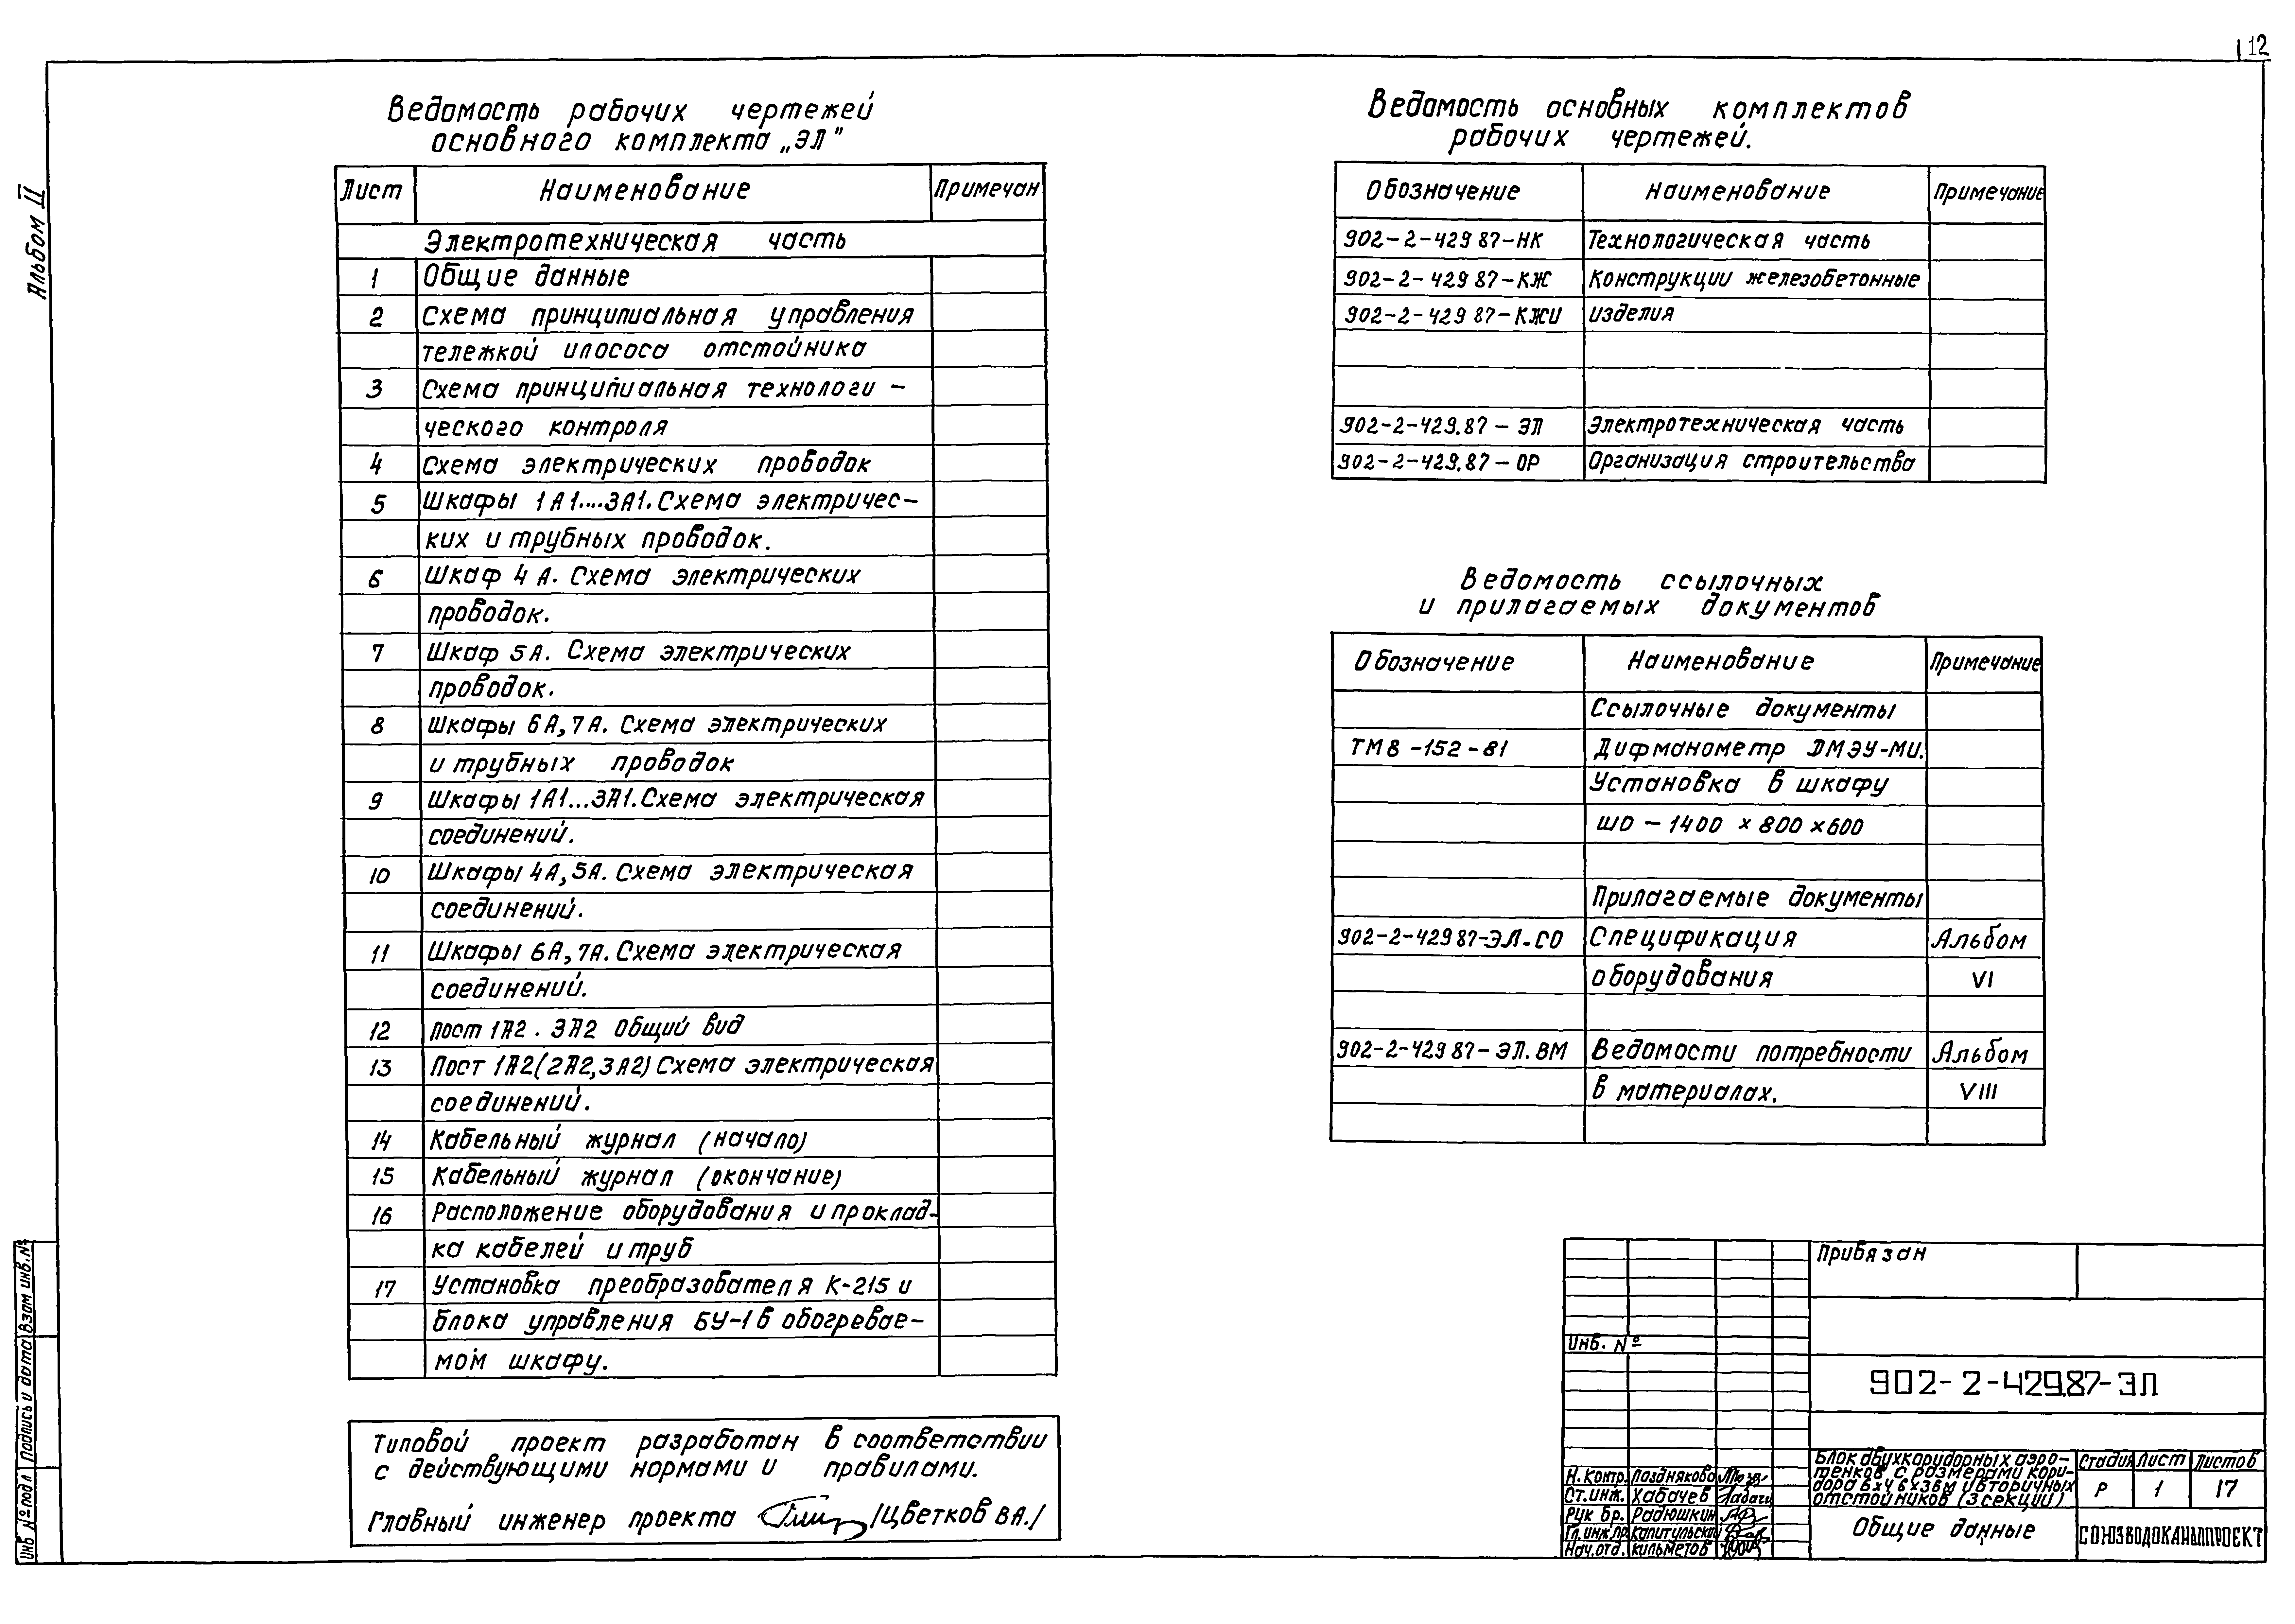 12
Альбом II
Ведомость рабочих чертежей
основного комплекта „ЭЛ"
Лист Наименование Примечан
Электротехническая часть
1 Общие данные
2 Схема принципиальная управления
тележкой илососа отстойника
3 Схема принципиальная технологи-
ческого контроля
4 Схема электрических проводок
5 Шкафы 1А1....3А1. Схема электричес-
ких и трубных проводок.
6 Шкаф 4А. Схема электрических
проводок.
7 Шкаф 5А. Схема электрических
проводок.
8 Шкафы 6А, 7А. Схема электрических
и трубных проводок
9 Шкафы 1А1...3А1. Схема электрическая
соединений.
10 Шкафы 4А, 5А. Схема электрическая
соединений.
11 Шкафы 6А, 7А. Схема электрическая
соединений.
12 Пост 1А2. 3А2 Общий вид
13 Пост 1А2(2А2, 3А2) Схема электрическая
соединений.
14 Кабельный журнал (начало)
15 Кабельный журнал (окончание)
16 Расположение оборудования и проклад-
ка кабелей и труб
17 Установка преобразователя К-215 и
блока управления БУ-1 в обогревае-
мом шкафу.
Типовой проект разработан в соответствии
с действующими нормами и правилами.
Главный инженер проекта /Цветков В.А./
Ведомость основных комплектов
рабочих чертежей.
Обозначение Наименование Примечание
902-2-429 87-НК Технологическая часть
902-2-429 87-КЖ Конструкции железобетонные
902-2-429 87-КЖИ Изделия
902-2-429.87-ЭЛ Электротехническая часть
902-2-429.87-ОР Организация строительства
Ведомость ссылочных
и прилагаемых документов
Обозначение Наименование Примечание
Ссылочные документы
ТМ8-152-81 Дифманометр ДМЭУ-МИ.
Установка в шкафу
ШО-1400×800×600
Прилагаемые документы
902-2-429 87-ЭЛ.СО Спецификация Альбом
оборудования VI
902-2-429 87-ЭЛ.ВМ Ведомости потребности Альбом
в материалах. VIII
Привязан
Инв. №
902-2-429.87-ЭЛ
Блок двухкоридорных аэро-
тенков с размерами кори-
дора 6×4,6×36м и вторичных
отстойников (3 секции)
Стадия Лист Листов
Р 1 17
Общие данные
СОЮЗВОДОКАНАЛПРОЕКТ
Н.контр. Позднякова
Ст.инж. Хабачев
Рук бр. Радюшкин
Гл.инж.пр Капитульский
Нач.отд. Кильметов
Инв № подл Подпись и дата Взам инв.№